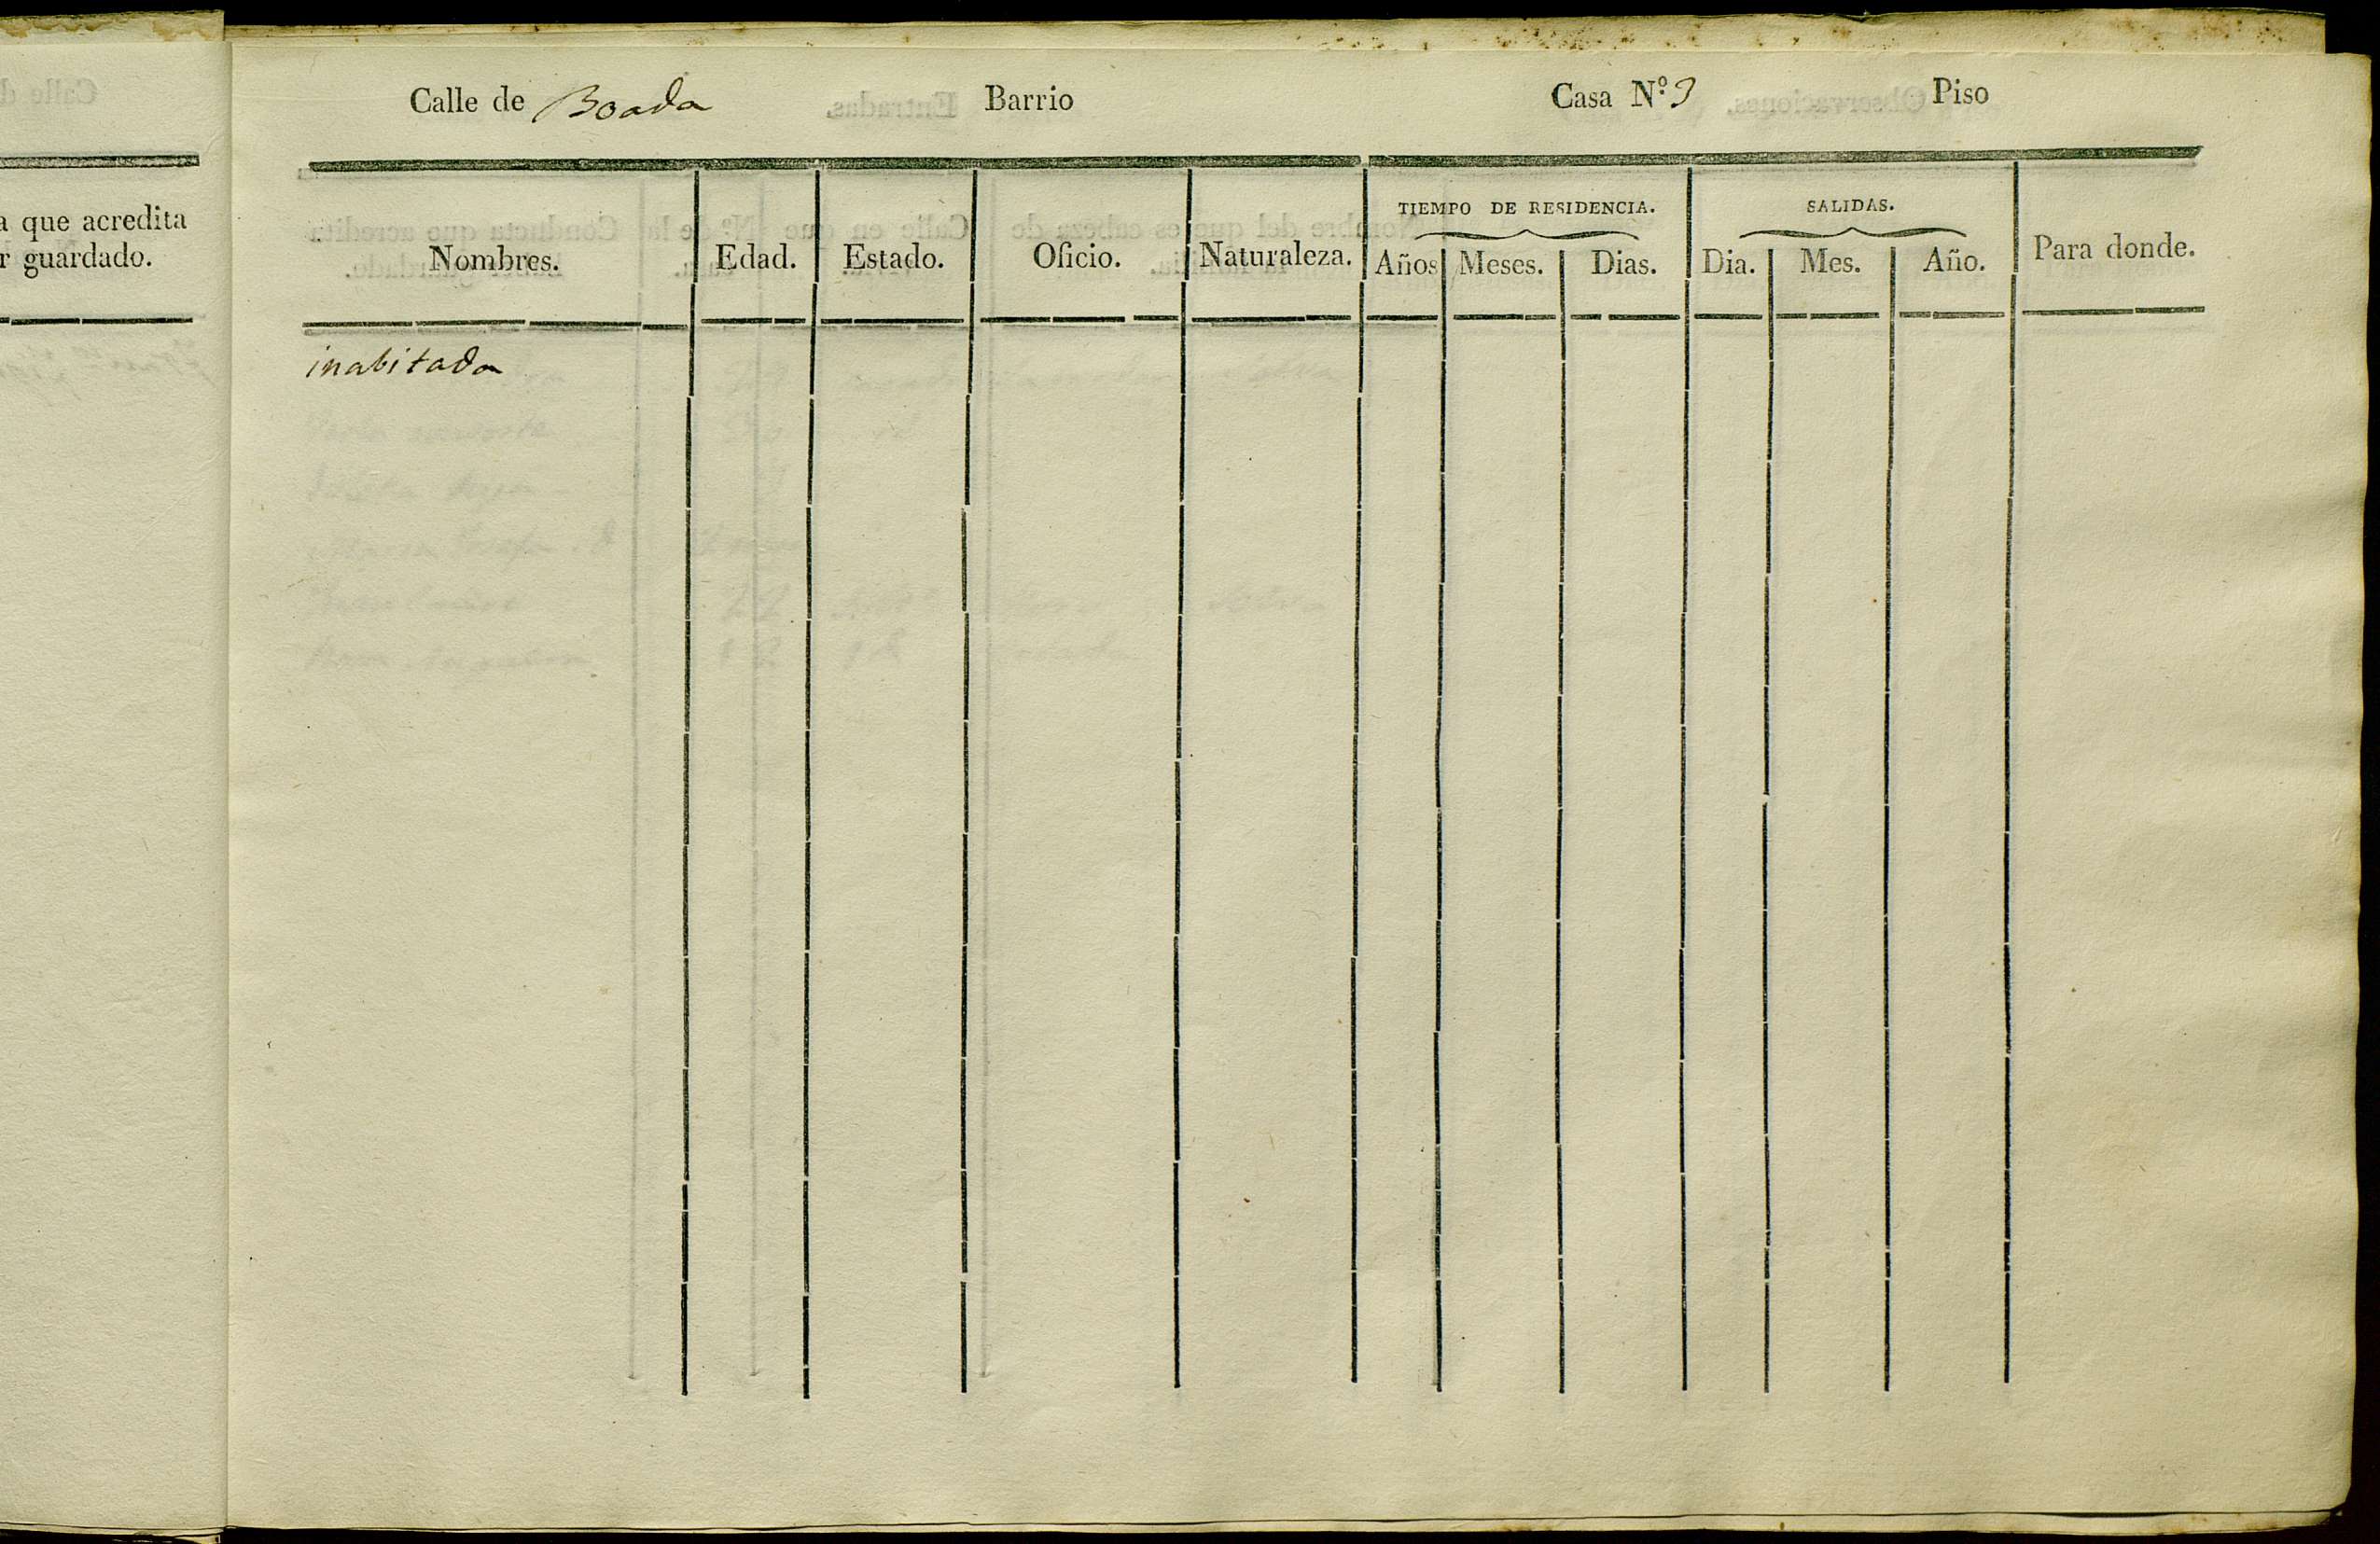 a que acredita
r guardado.
Calle de Boada Barrio Casa N.º 3 Piso
TIEMPO DE RESIDENCIA. SALIDAS.
Nombres. Edad. Estado. Oficio. Naturaleza. Años Meses. Dias. Dia. Mes. Año. Para donde.
inabitada